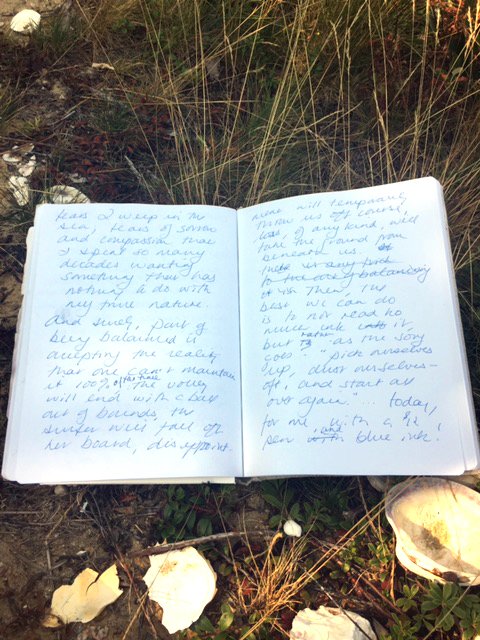 tears I weep in the
sea, tears of sorrow
and compassion that
I spent so many
decades wanting
something that has
nothing to do with
my true nature.
And surely, part of
being balanced is
accepting the reality
that one can't maintain
it 100% of the time. The volley
will end with a ball
out of bounds, the
surfer will fall off
her board, disappoint-
ment will temporarily
throw us off course,
loss of any kind will
take the ground from
beneath us.
Then, the
best we can do
is to not read too
much into it,
but rather - as the song
goes - "pick ourselves
up, dust ourselves
off, and start all
over again." ... today,
for me, with a
pen and blue ink!